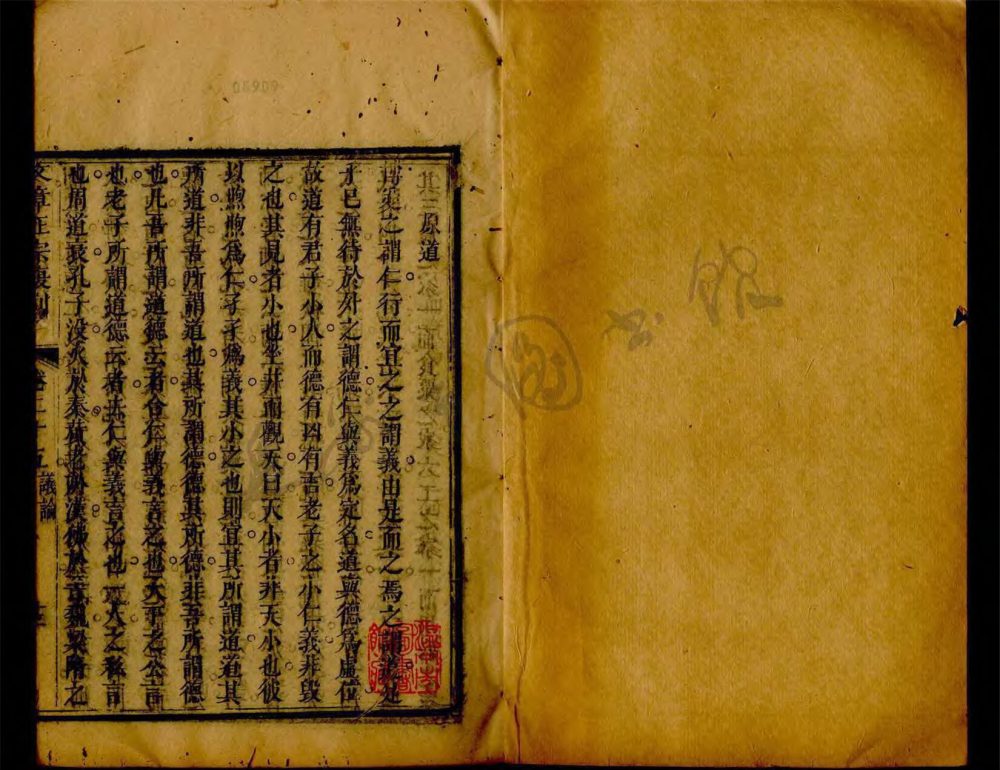 館
書
05909
其三原道
博愛之謂仁行而宜之之謂義由是而之焉之謂道足
乎已無待於外之謂德仁與義為定名道與德為虛位
故道有君子小人而德有凶有吉老子之小仁義非毀
之也其見者小也坐井而觀天曰天小者非天小也彼
以煦煦為仁孑孑為義其小之也則宜其所謂道道其
所道非吾所謂道也其所謂德德其所德非吾所謂德
也凡吾所謂道德云者合仁與義言之也天下之公言
也老子所謂道德云者去仁與義言之也一人之私言
也周道衰孔子沒火於秦黃老於漢佛於晉魏梁隋之
文章正宗復刻 卷二十五 議論